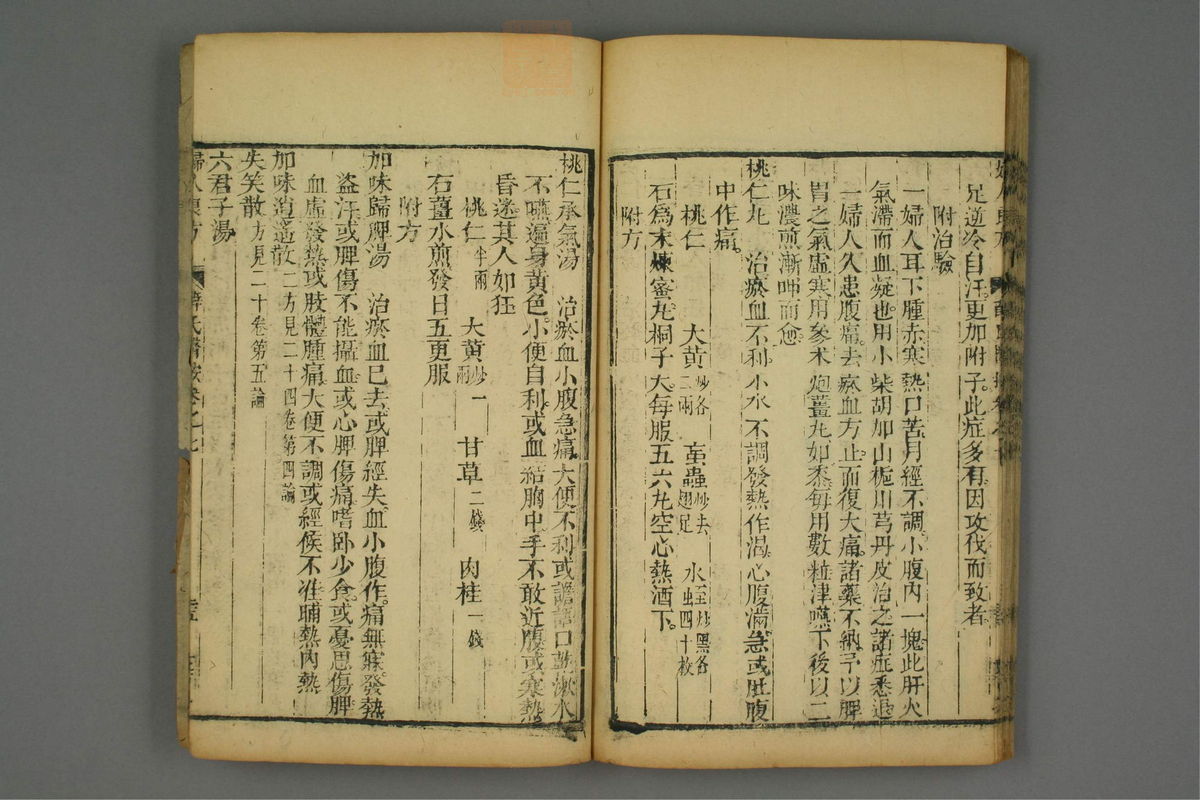 足逆冷自汗更加附子此症多有因攻伐而致者
附治驗
一婦人耳下腫赤寒熱口苦月經不調小腹內一塊此肝火
氣滯而血凝也用小柴胡加山梔川芎丹皮治之諸症悉退
一婦人久患腹痛去瘀血方止而復大痛諸藥不納予以脾
胃之氣虛寒用參术炮薑丸如黍每用數粒津嚥下後以二
味濃煎漸呷而愈
桃仁丸 治瘀血不利小水不調發熱作渴心腹滿急或肚腹
中作痛
桃仁 大黃炒各二兩 䖟蟲炒去翅足 水蛭炒黑各四十枚
右為末煉蜜丸桐子大每服五六丸空心熱酒下
附方
桃仁承氣湯 治瘀血小腹急痛大便不利或譫語口乾漱水
不嚥遍身黃色小便自利或血結胸中手不敢近腹或寒熱
昏迷其人如狂
桃仁半兩 大黃炒一兩 甘草二錢 肉桂一錢
右薑水煎發日五更服
附方
加味歸脾湯 治瘀血已去或脾經失血小腹作痛無寐發熱
盜汗或脾傷不能攝血或心脾傷痛嗜卧少食或憂思傷脾
血虛發熱或肢體腫痛大便不調或經候不准晡熱內熱
加味逍遙散二方見二十四卷第四論
失笑散方見二十卷第五論
六君子湯
婦人良方 薛氏醫按卷之七